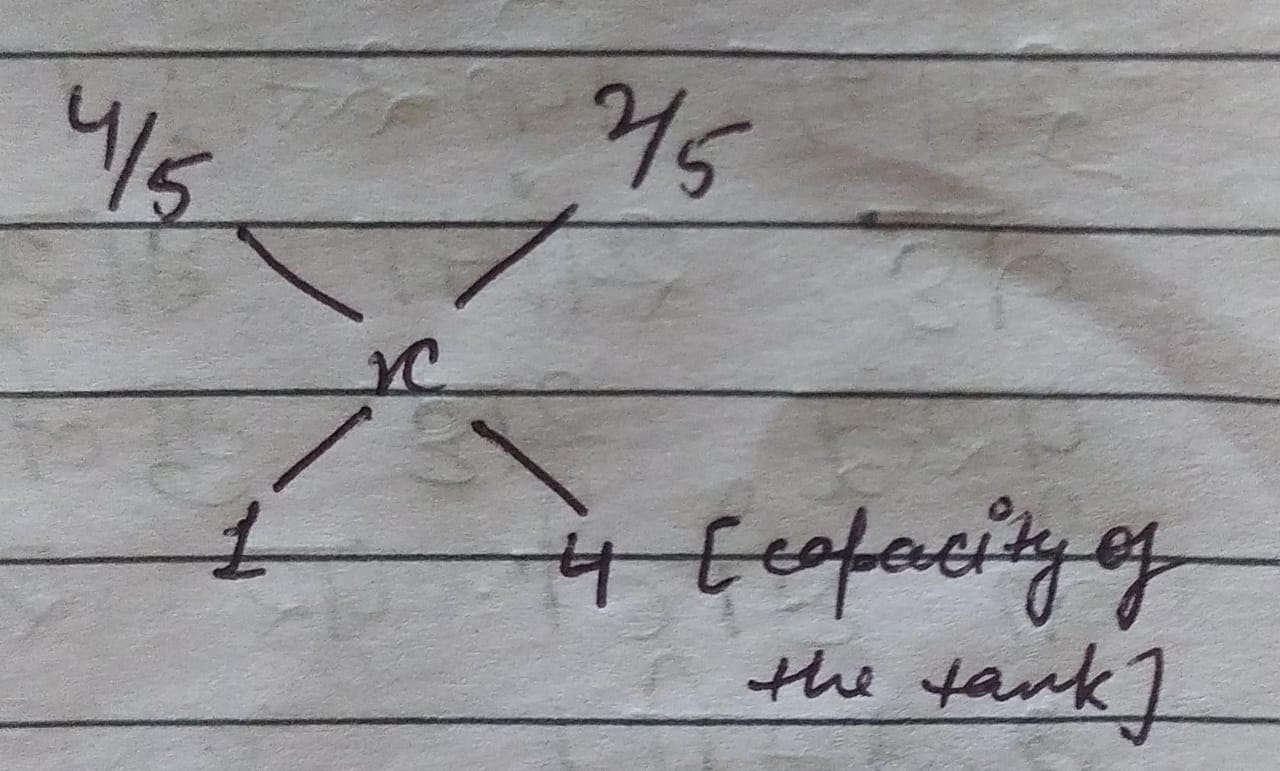 4/5 2/5
x
1 4 [capacity of
the tank]